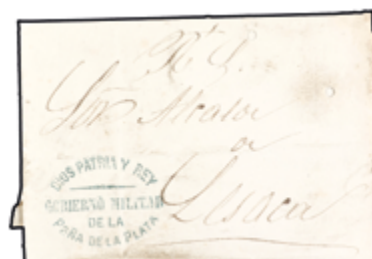 Rl S.
Sor Alcalde
a
Lesaca
DIOS PATRIA Y REY
GOBIERNO MILITAR
DE LA
PEÑA DE LA PLATA